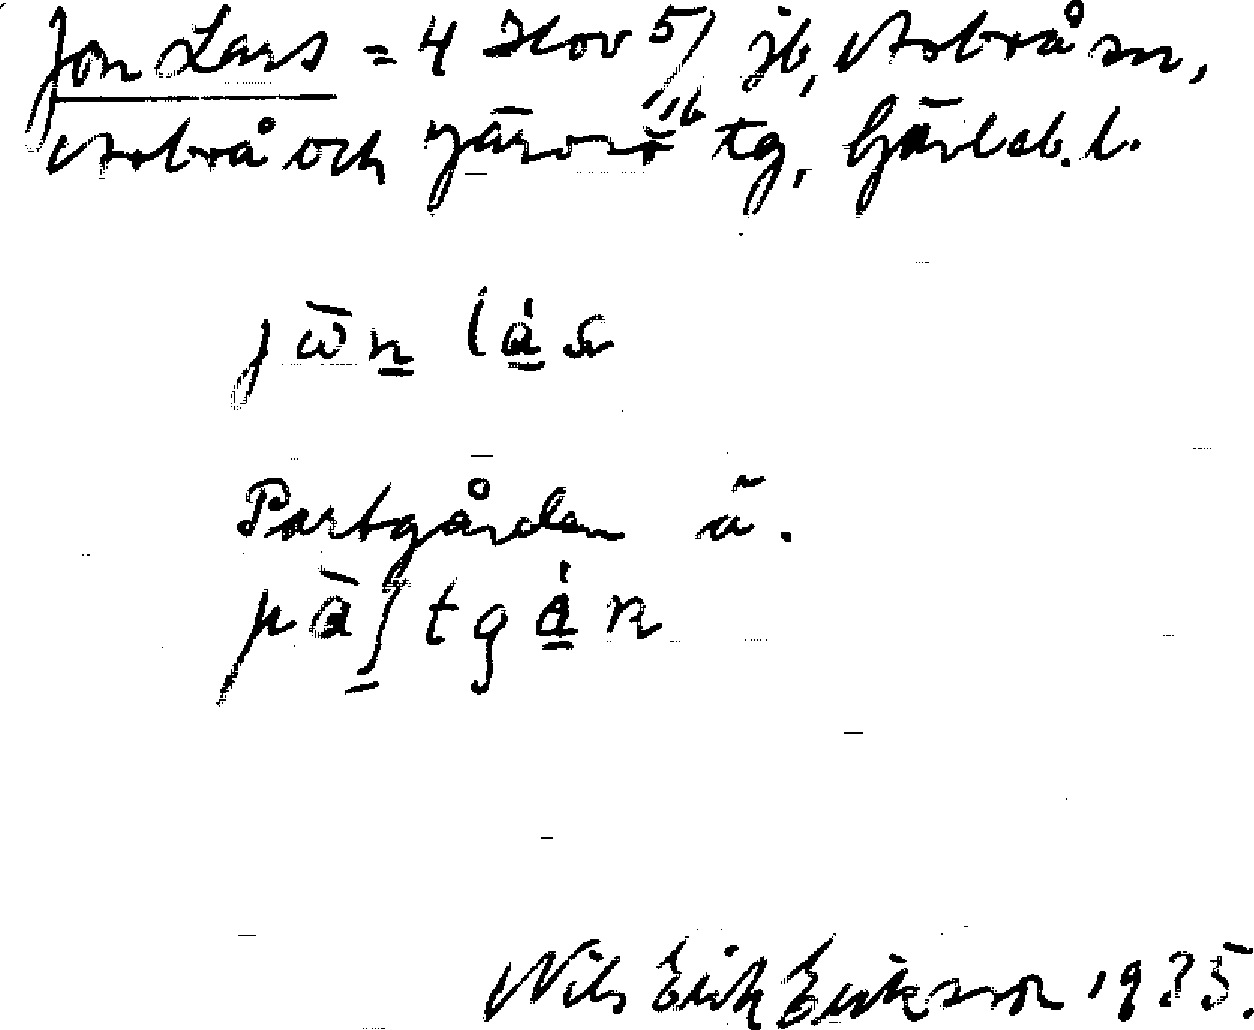 Jon Lars = 4 Hov 5/16 jb, Arbrå sn,
Arbrå och Järvsö tg, Gävleb. l.
jωn lás
Partgården ä.
pàʃtgán
Nils Erik Eriksson 1935.